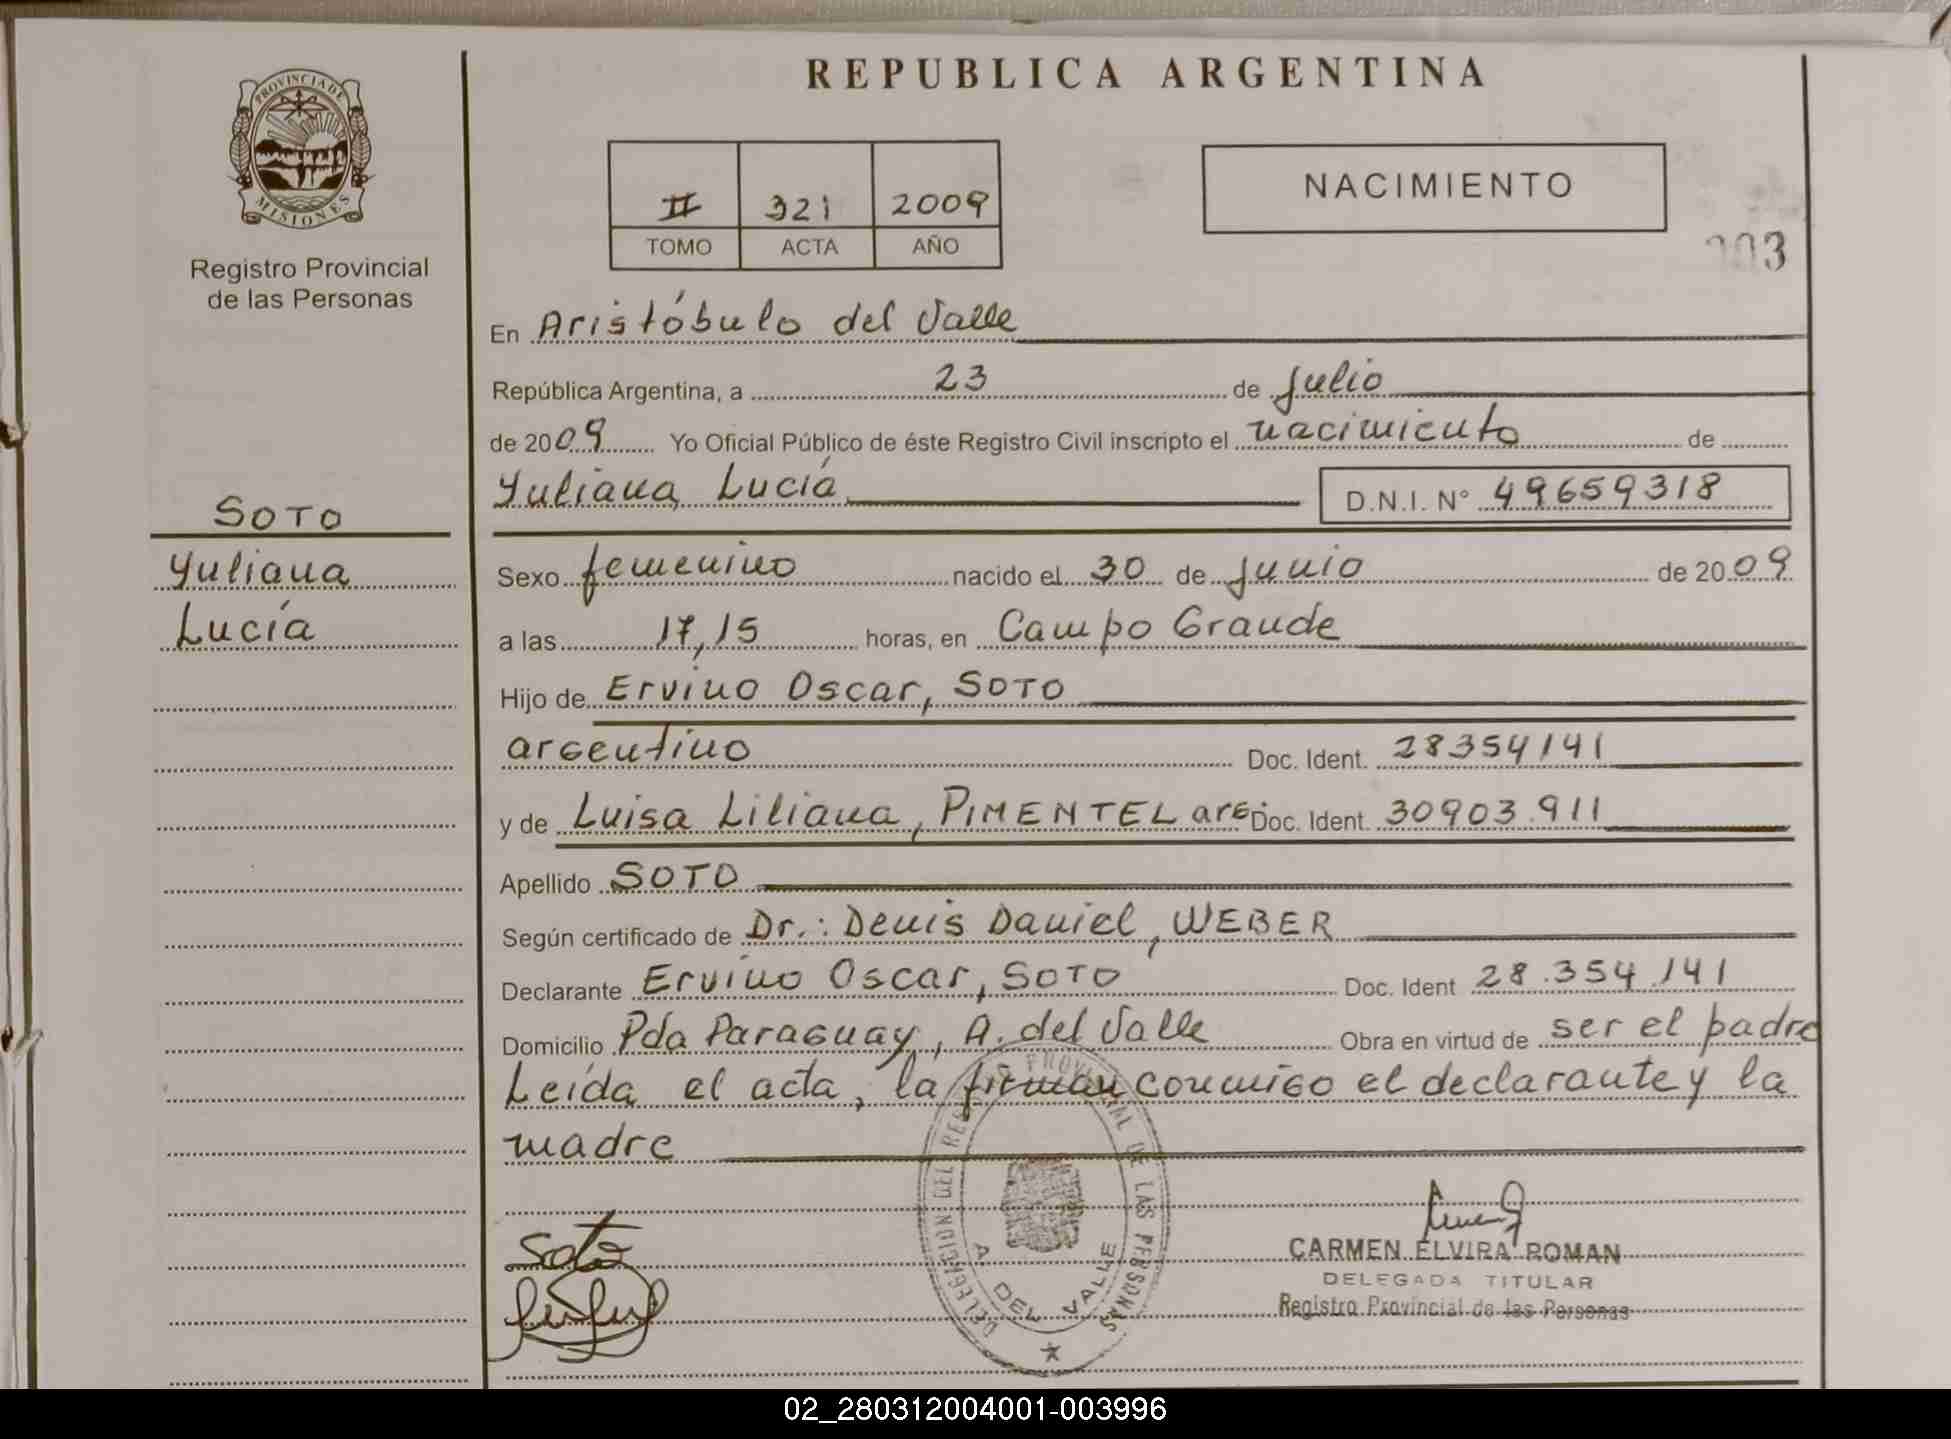 REPUBLICA ARGENTINA
PROVINCIA DE MISIONES
Registro Provincial
de las Personas
II 321 2009
TOMO ACTA AÑO
NACIMIENTO
En Aristóbulo del Valle
República Argentina, a 23 de Julio
de 2009 Yo Oficial Público de éste Registro Civil inscripto el nacimiento de
Yuliana Lucía D.N.I. N° 49659318
SOTO
Yuliana
Lucía
Sexo femenino nacido el 30 de Junio de 2009
a las 17,15 horas, en Campo Grande
Hijo de Ervino Oscar, SOTO
argentino Doc. Ident. 28354141
y de Luisa Liliana, PIMENTEL arg. Doc. Ident. 30903.911
Apellido SOTO
Según certificado de Dr.: Denis Daniel, WEBER
Declarante Ervino Oscar, SOTO Doc. Ident 28.354.141
Domicilio Pda Paraguay, A. del Valle Obra en virtud de ser el padre
Leída el acta, la firman conmigo el declarante y la
madre
DELEGACION DEL REGISTRO PROVINCIAL DE LAS PERSONAS
A. DEL VALLE
Soto
CARMEN ELVIRA ROMAN
DELEGADA TITULAR
Registro Provincial de las Personas
02_280312004001-003996